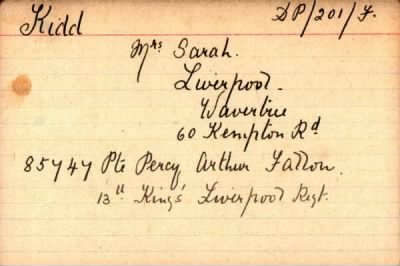 Kidd DP/201/F.
Mrs Sarah.
Liverpool.
Wavertree
60 Kempton Rd
85747 Pte Percy Arthur Fallon.
13th King's Liverpool Regt.